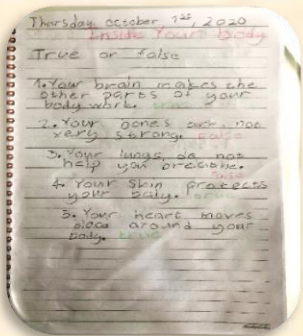 Thursday, October 1st, 2020
Inside Your Body
True or false
1. Your brain makes the
other parts of your
body work. true
2. Your bones are not
very strong. false
3. Your lungs do not
help you breathe.
false
4. Your skin protects
your body. true
5. Your heart moves
blood around your
body. true